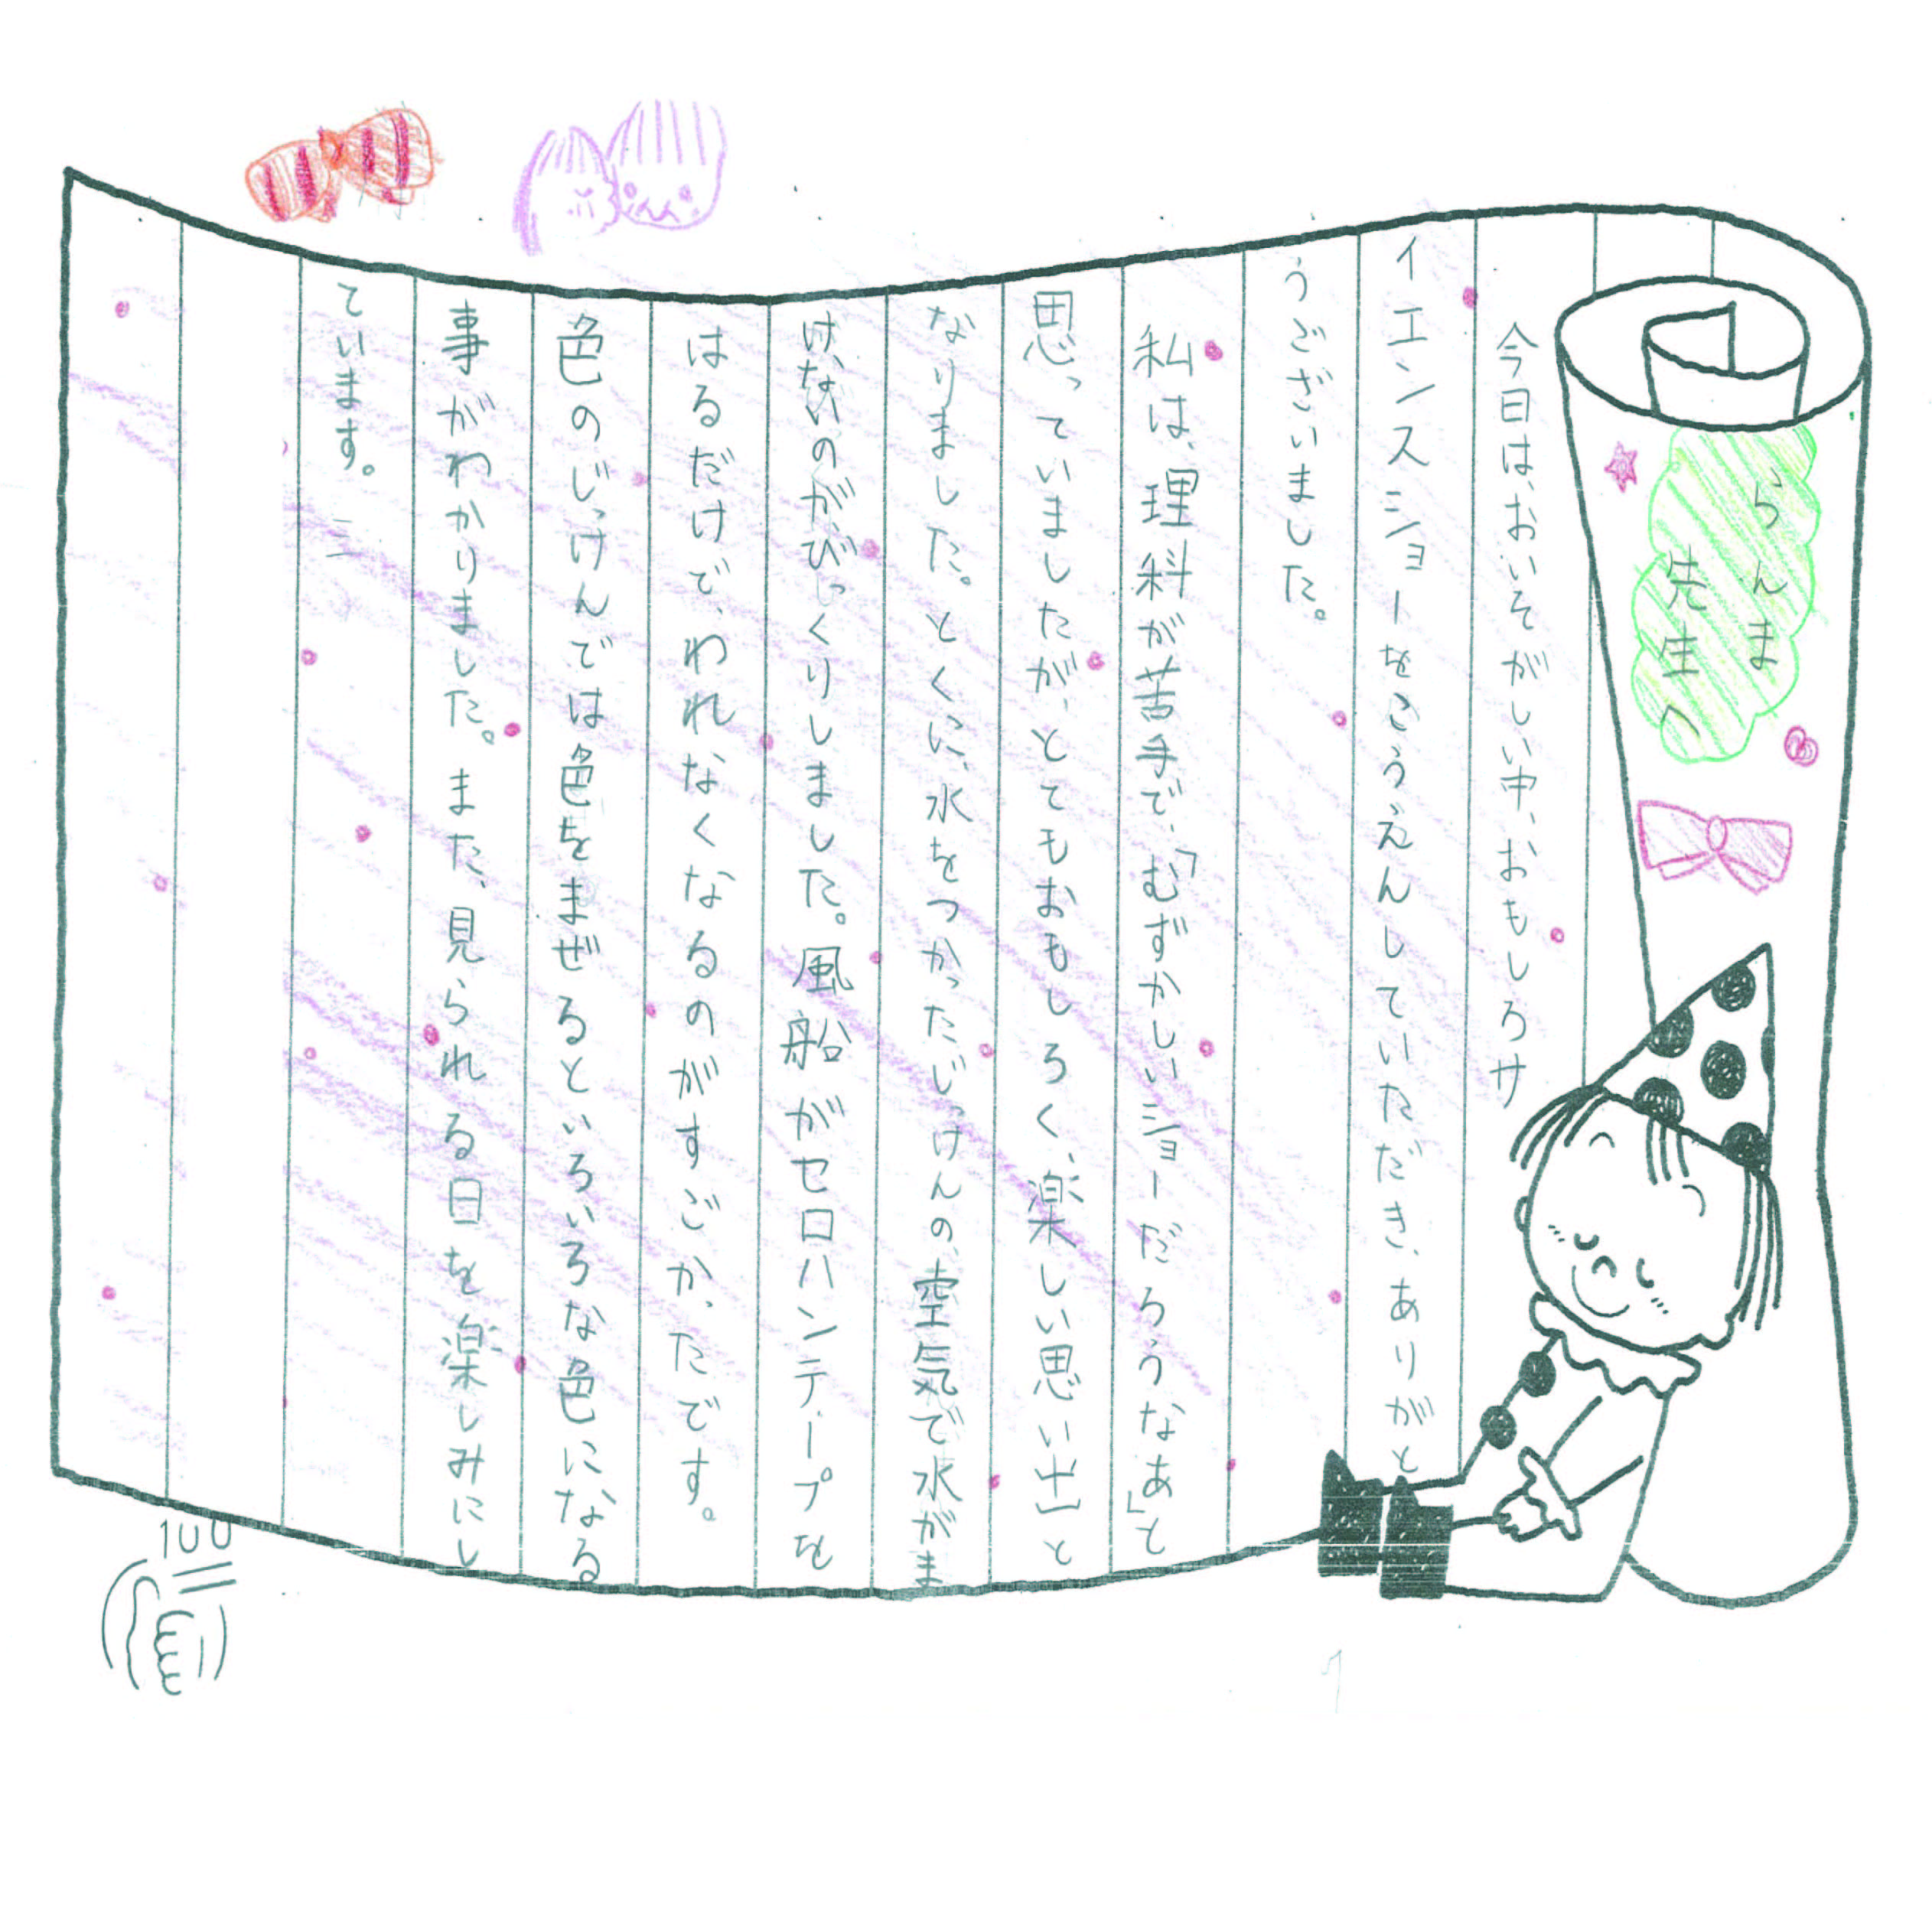 らんま
先生へ
今日は、おいそがしい中、おもしろサ
イエンスショーをこうえんしていただき、ありがと
うございました。
私は、理科が苦手で、「むずかしいショーだろうなあ」と
思っていましたが、とてもおもしろく、楽しい思い出と
なりました。とくに、水をつかったじっけんの、空気で水がま
けないのが、びっくりしました。風船がセロハンテープを
はるだけで、われなくなるのがすごかったです。
色のじっけんでは色をまぜるといろいろな色になる
事がわかりました。また、見られる日を楽しみにし
ています。
100